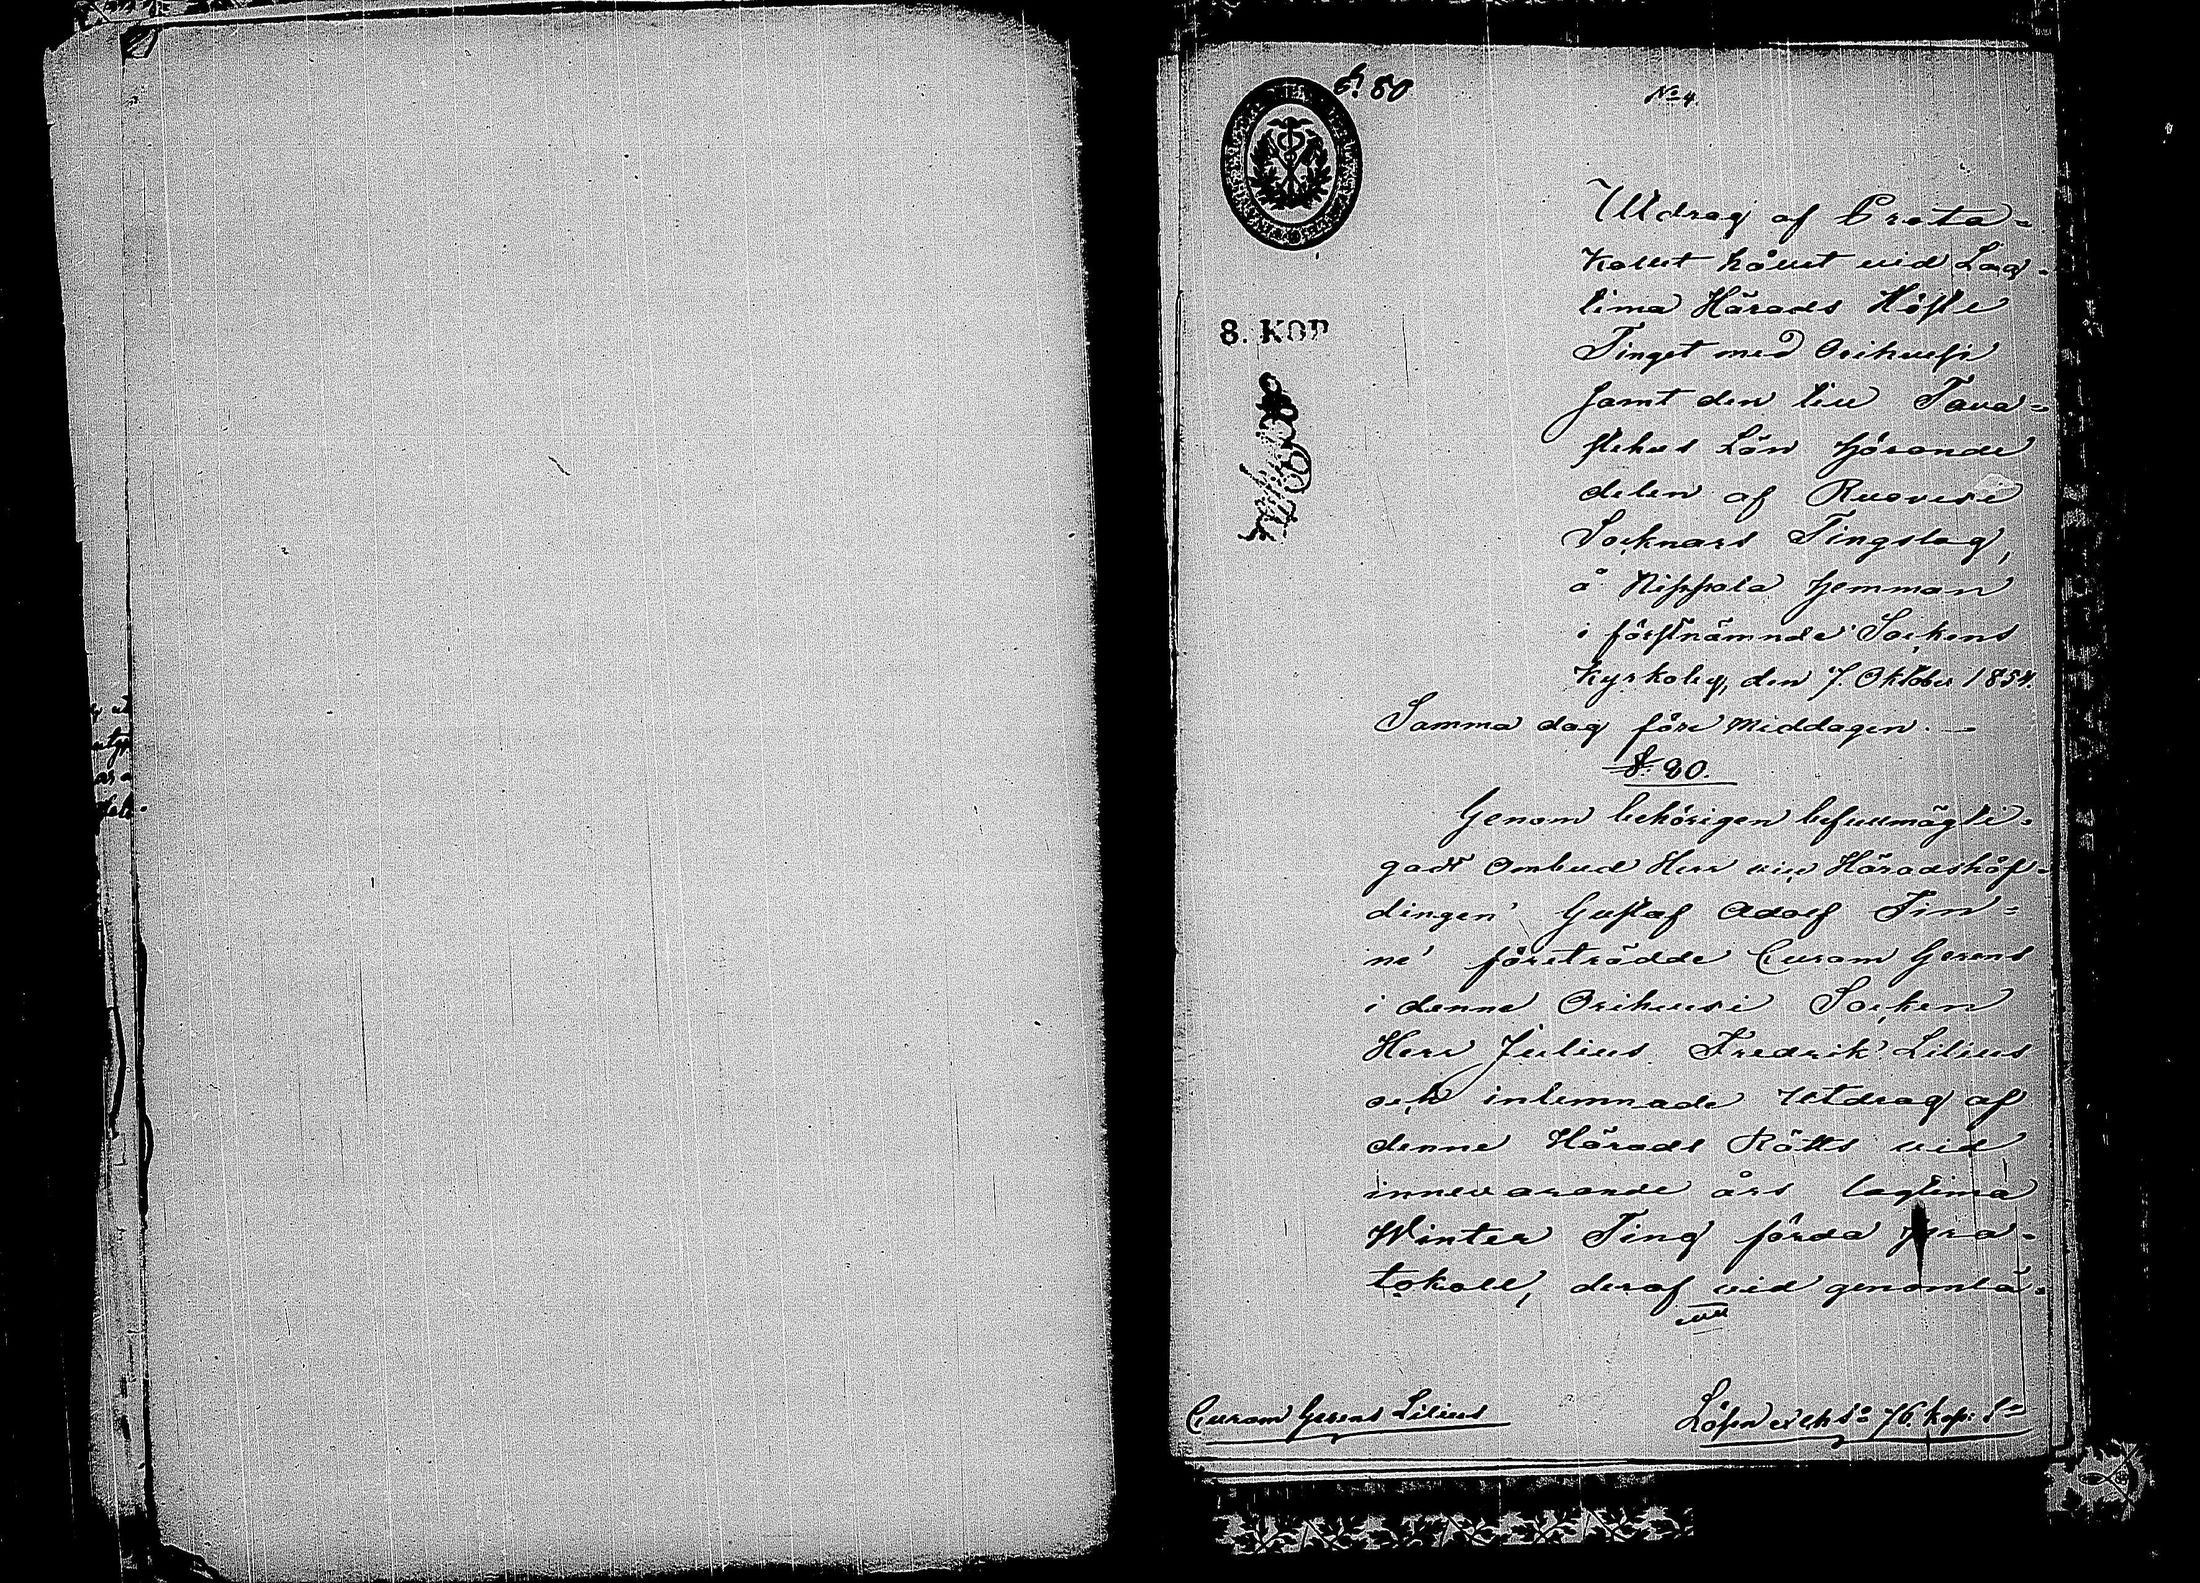 §. 80
No 4.
8. KOP
Utdrag af Proto=
kollet hållet vid Lag=
tima Härads Höste
Tinget med Orihvesi
samt den till Tava=
stehus Län hörande
delen af Ruovesi
Socknars Tingslag,
å Nihhola hemman
i förstnämnde Sockens
Kyrkoby, den 7. Oktober 1854.
Samma dag före middagen. —
§. 80.
Genom behörigen befullmägti=
gadt Ombud Herr vice Häradshöf=
dingen Gustaf Adolf Fin=
ne' företrädde Curam Gerens
i denne Orihvesi Socken
Herr Julius Fredrik Lilius
och inlemnade Utdrag af
denne Härads Rätts vid
innevarande års lagtima
Winter Ting förda pro=
tokoll, deraf vid genomlä=
Curam Gerens Lilius
Lösen 76. kop: Sr